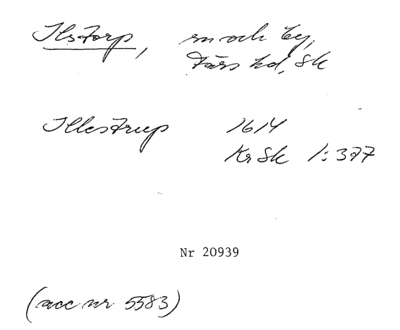 Ilstorp, sn och by,
Färs hd, Sk
Illestrup 1614
KrSk 1:377
Nr 20939
(acc nr 5583)